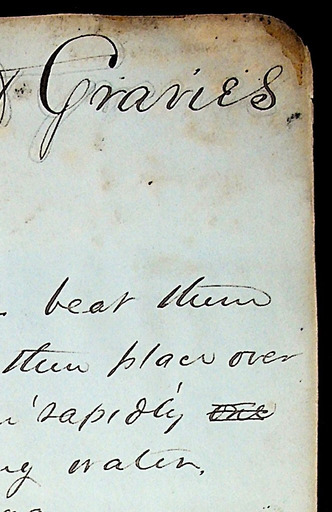 & Gravies
beat them
then place over
rapidly ~~one~~
ng water.